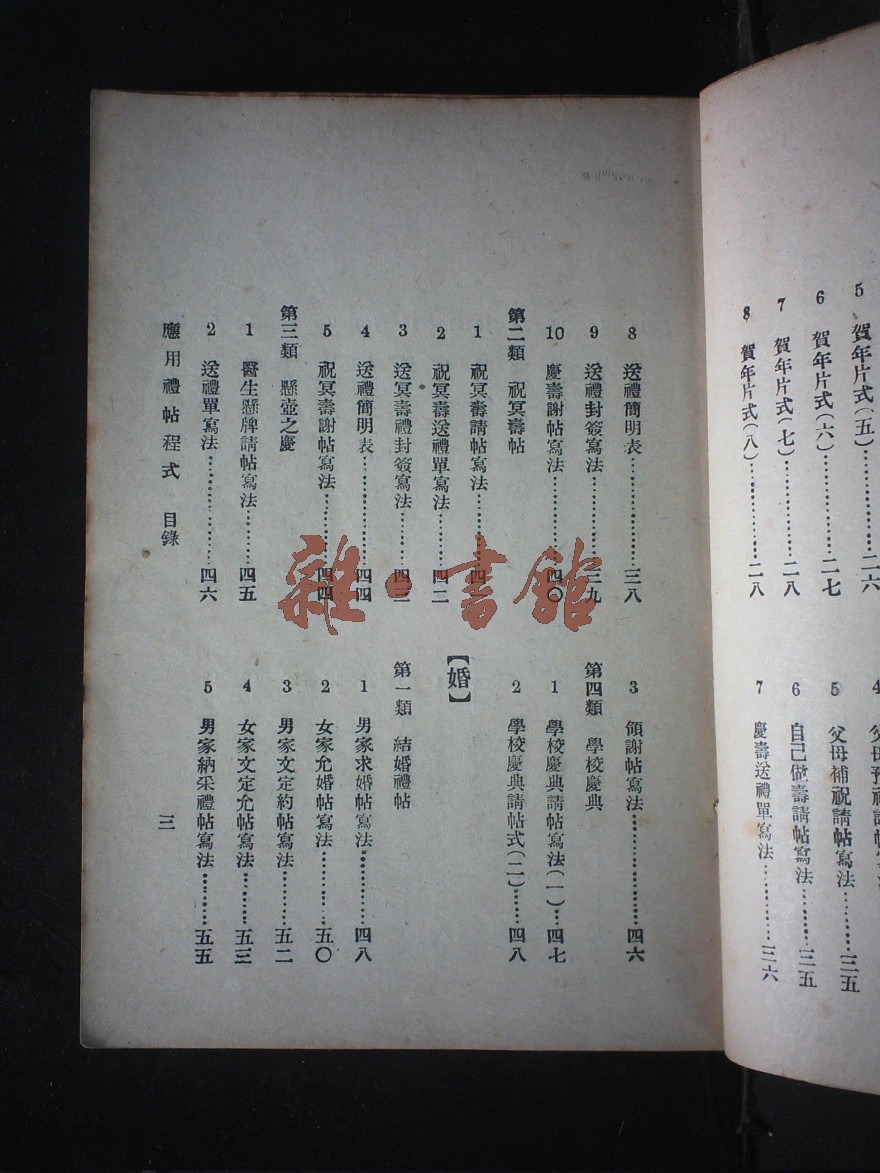 5 賀年片式(五)…………二六
6 賀年片式(六)…………二七
7 賀年片式(七)…………二八
8 賀年片式(八)…………二八
4 父母預祝請帖
5 父母補祝請帖寫法………三五
6 自己做壽請帖寫法………三五
7 慶壽送禮單寫法…………三六
8 送禮簡明表………………三八
9 送禮封簽寫法……………三九
10 慶壽謝帖寫法……………四〇
第二類 祝冥壽帖
1 祝冥壽請帖寫法…………四
2 祝冥壽送禮單寫法………四二
3 送冥壽禮封簽寫法………四三
4 送禮簡明表………………四四
5 祝冥壽謝帖寫法…………四四
第三類 懸壺之慶
1 醫生懸牌請帖寫法………四五
2 送禮單寫法………………四六
3 領謝帖寫法………………四六
第四類 學校慶典
1 學校慶典請帖寫法(一)…四七
2 學校慶典請帖式(二)……四八
【婚】
第一類 結婚禮帖
1 男家求婚帖寫法…………四八
2 女家允婚帖寫法…………五〇
3 男家文定約帖寫法………五二
4 女家文定允帖寫法………五三
5 男家納采禮帖寫法………五五
應用禮帖程式 目錄
三
雜·書館